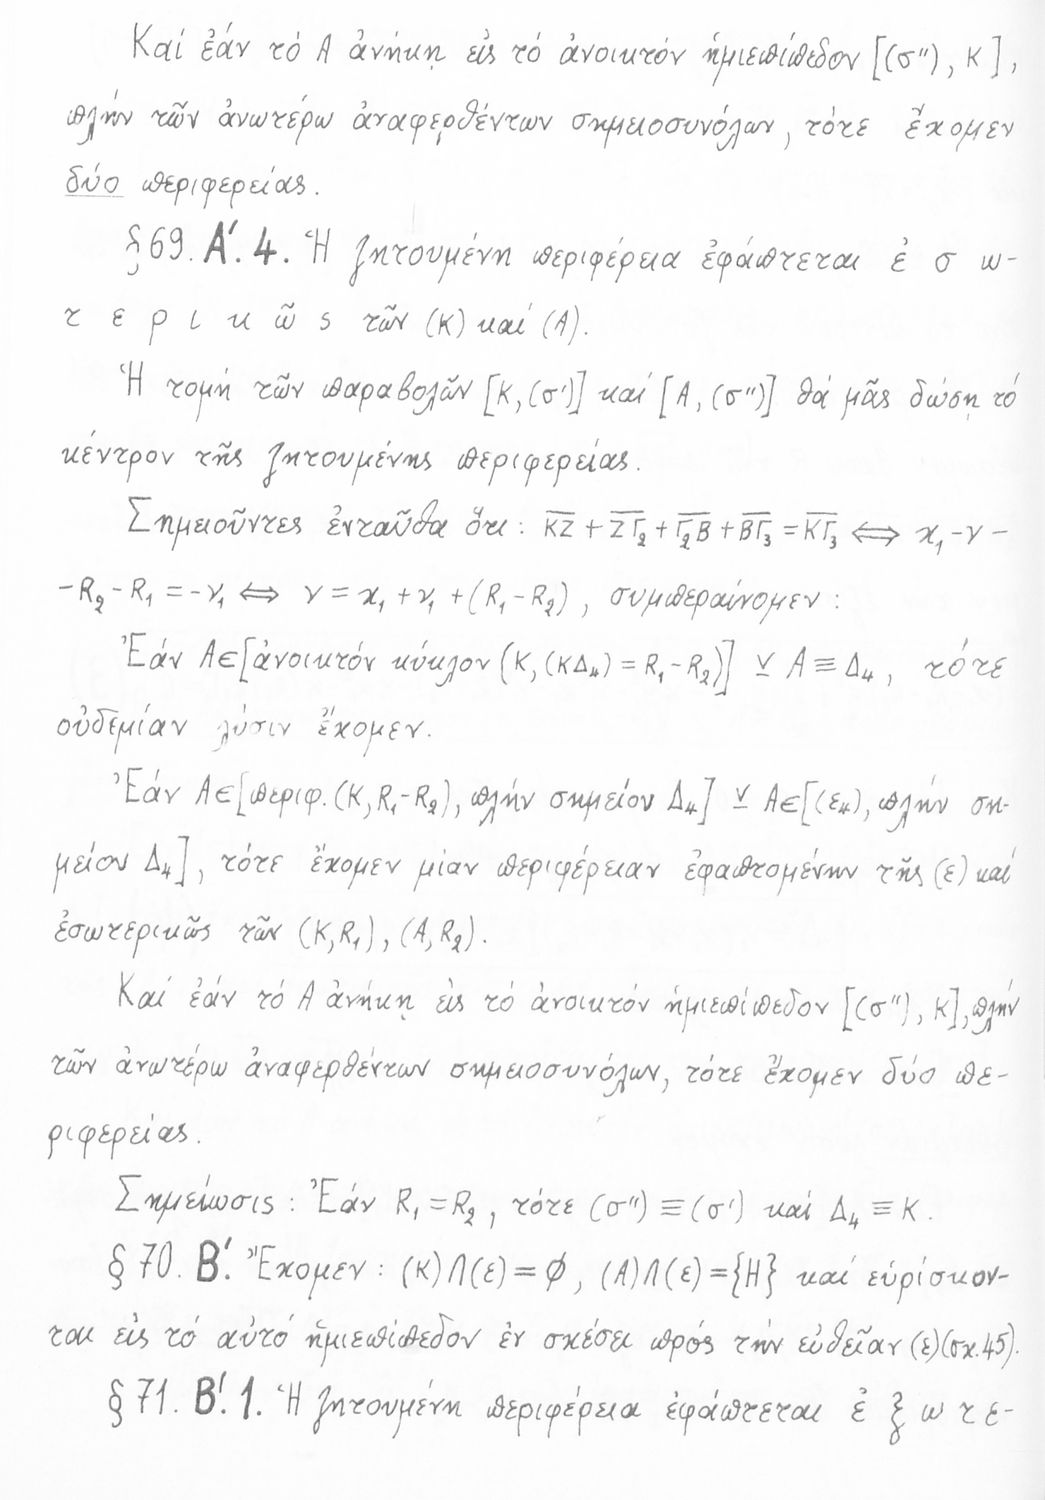 Καί ἐάν τό Α ἀνήκῃ εἰς τό ἀνοικτόν ἡμιεπίπεδον [(σ"), Κ],
πλήν τῶν ἀνωτέρω ἀναφερθέντων σημειοσυνόλων, τότε ἔχομεν
δύο περιφερείας.
§69. Α'. 4. Ἡ ζητουμένη περιφέρεια ἐφάπτεται ἐ σ ω-
τ ε ρ ι κ ῶ ς τῶν (Κ) καί (Α).
Ἡ τομή τῶν παραβολῶν [Κ, (σ')] καί [Α, (σ")] θά μᾶς δώσῃ τό
κέντρον τῆς ζητουμένης περιφερείας.
Σημειοῦντες ἐνταῦθα ὅτι: K̅Z̅ + Z̅Γ̅₂ + Γ̅₂B̅ + B̅Γ̅₃ = K̅Γ̅₃ ⟺ x₁-ν-
-R₂-R₁ = -ν₁ ⟺ ν = x₁+ν₁+(R₁-R₂), συμπεραίνομεν:
Ἐάν Α∈[ἀνοικτόν κύκλον (Κ, (ΚΔ₄) = R₁-R₂)] ⊻ Α≡Δ₄, τότε
οὐδεμίαν λύσιν ἔχομεν.
Ἐάν Α∈[περιφ. (Κ, R₁-R₂), πλήν σημείου Δ₄] ⊻ Α∈[(ε₄), πλήν ση-
μείου Δ₄], τότε ἔχομεν μίαν περιφέρειαν ἐφαπτομένην τῆς (ε) καί
ἐσωτερικῶς τῶν (Κ, R₁), (Α, R₂).
Καί ἐάν τό Α ἀνήκῃ εἰς τό ἀνοικτόν ἡμιεπίπεδον [(σ"), Κ], πλήν
τῶν ἀνωτέρω ἀναφερθέντων σημειοσυνόλων, τότε ἔχομεν δύο πε-
ριφερείας.
Σημείωσις: Ἐάν R₁=R₂, τότε (σ")≡(σ') καί Δ₄≡Κ.
§70. Β'. Ἔχομεν: (Κ)∩(ε)=∅, (Α)∩(ε)={Η} καί εὑρίσκον-
ται εἰς τό αὐτό ἡμιεπίπεδον ἐν σχέσει πρός τήν εὐθεῖαν (ε) (σχ.45).
§71. Β'. 1. Ἡ ζητουμένη περιφέρεια ἐφάπτεται ἐ ξ ω τ ε-